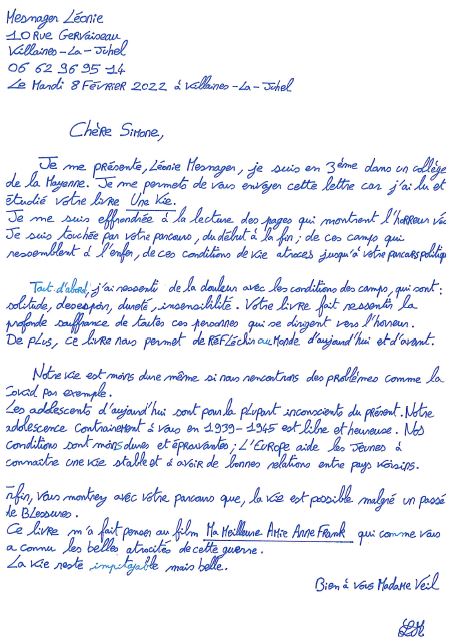 Mesnager Léonie
10 Rue Gervaiseau
Villaines-La-Juhel
06 62 96 95 14
Le Mardi 8 Février 2022 à Villaines-La-Juhel
Chère Simone,
Je me présente, Léonie Mesnager, je suis en 3ème dans un collège
de la Mayenne. Je me permets de vous envoyer cette lettre car j'ai lu et
étudié votre livre Une Vie.
Je me suis effrondrée à la lecture des pages qui montrent l'horreur
Je suis touchée par votre parcours, du début à la fin ; de ces camps qui
ressemblent à l'enfer, de ces conditions de vie atroces jusqu'à votre parcours politiqu
Tout d'abord, j'ai ressenti de la douleur avec les conditions des camps, qui sont :
solitude, desespoir, dureté, insensibilité. Votre livre fait ressentir la
profonde souffrance de toutes ces personnes qui se dirigent vers l'horreur.
De plus, ce livre nous permet de Réfléchir au Monde d'aujourd'hui et d'avant.
Notre vie est moins dure même si nous rencontrons des problèmes comme la
Covid par exemple.
Les adolescents d'aujourd'hui sont pour la plupart inconscients du présent. Notre
adolescence contrairement à vous en 1939-1945 est libre et heureuse. Nos
conditions sont moins dures et éprouvantes ; L'Europe aide les Jeunes à
connaître une vie stable et à avoir de bonnes relations entre pays voisins.
nfin, vous montrez avec votre parcours que, la vie est possible malgré un passé
de Blessures.
Ce livre m'a fait penser au film Ma Meilleure Amie Anne Frank qui comme vous
a connu les belles atrocités de cette guerre.
La vie reste impitoyable mais belle.
Bien à vous Madame Veil
LM